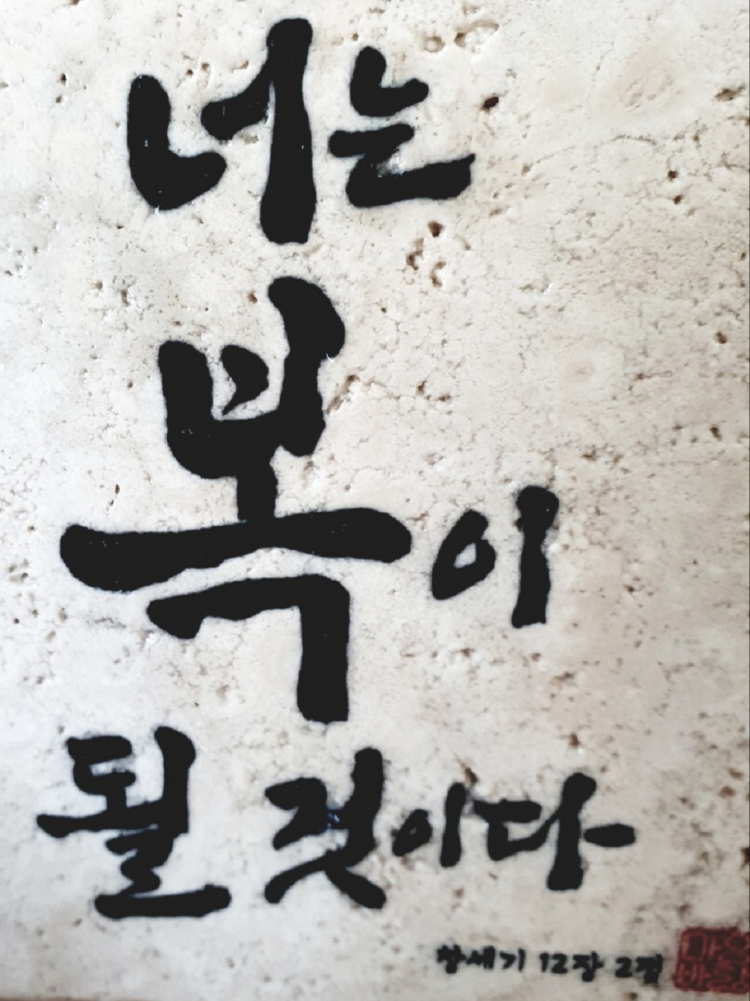 너는
복이
될 것이다
창세기 12장 2절